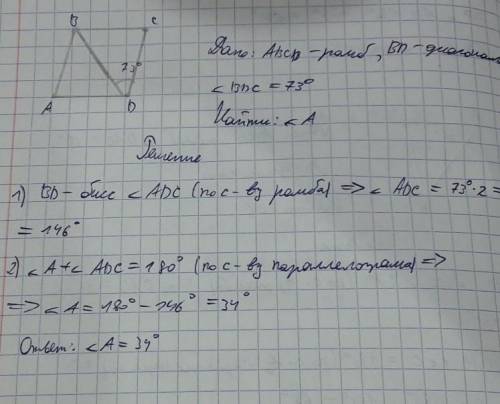 B C
73°
A D
Дано: ABCD - ромб, BD - диагонал
∠BDC = 73°
Найти: ∠A
Решение
1) BD - бисс ∠ADC (по с-ву ромба) => ∠ADC = 73°·2 =
= 146°
2) ∠A + ∠ADC = 180° (по с-ву параллелограма) =>
=> ∠A = 180° - 146° = 34°
Ответ: ∠A = 34°